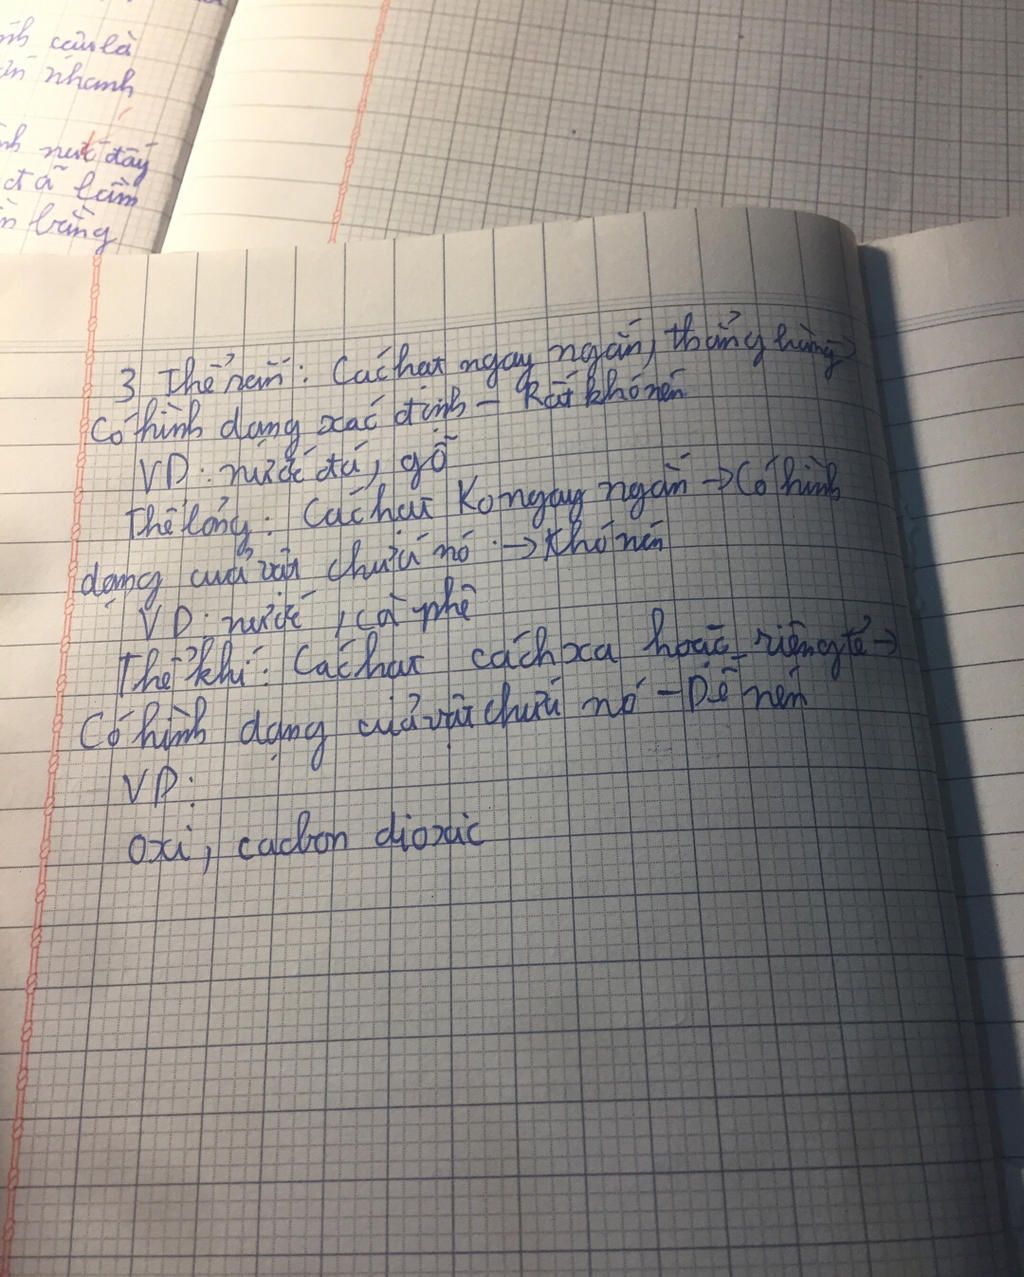 nh câu là
nhanh
nh nước đáy
đã làm
bằng
3 Thể rắn: Các hạt ngay ngắn, thẳng hàng →
Có hình dạng xác định - Rất khó nén
VD: nước đá, gỗ
Thể lỏng: Các hạt Ko ngay ngắn → Có hình
dạng cuả vật chứa nó → Khó nén
VD: nước, cà phê
Thể khí: Các hạt cách xa hoặc riêng tẻ →
Có hình dạng cuả vật chứa nó - Dễ nén
VD:
oxi, cacbon dioxic